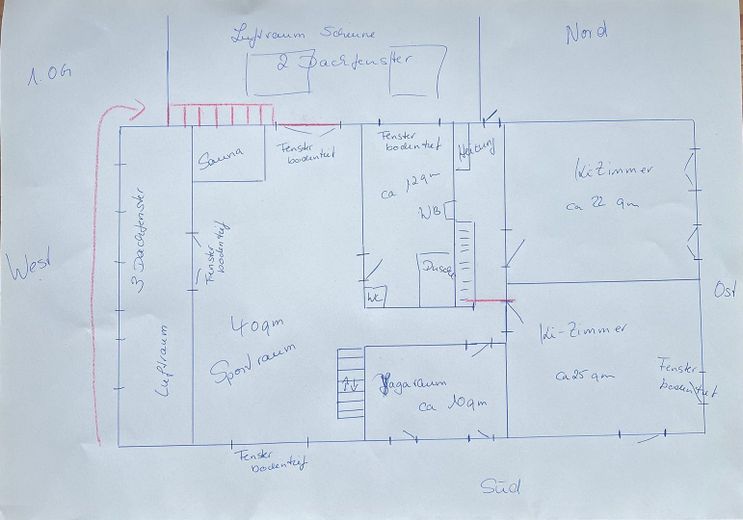 Luftraum Scheune
Nord
1. OG
2 Dachfenster
Fenster
bodentief
Fenster
bodentief
Heizung
Sauna
ca 12qm
KiZimmer
ca 22 qm
WB
3 Dachfenster
Fenster
bodentief
West
Dusche
WC
Ost
40qm
Sportraum
Ki-Zimmer
Luftraum
Yogaraum
ca 10qm
ca 25 qm
Fenster
bodentief
Fenster
bodentief
Süd